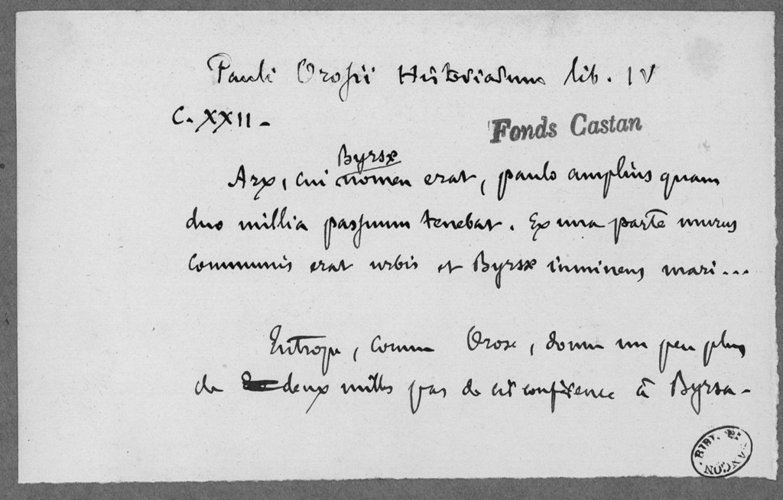 Pauli Orosii Historiarum lib. IV
C. XXII.
Fonds Castan
Byrsæ
Arx, cui nomen erat, paulo amplius quam
duo millia passuum tenebat. Ex una parte murus
communis erat urbis et Byrsæ inminens mari...
Eutrope, comme Orose, donne un peu plus
de deux milles pas de circonférence à Byrsa.
BIBL. DE